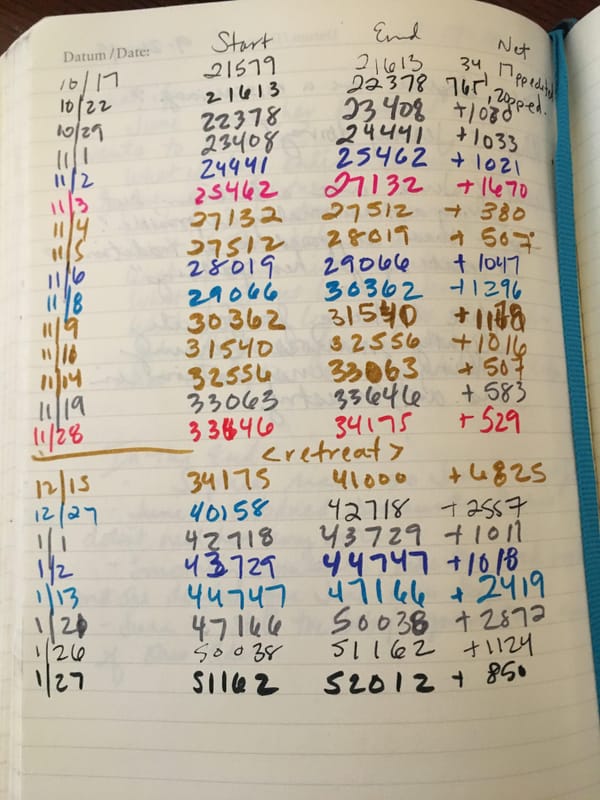 Datum / Date: Start End Net
10/17 21579 21613 34
10/22 21613 22378 765
10/29 22378 23408 +1030
11/1 23408 24441 +1033
11/2 24441 25462 +1021
11/3 25462 27132 +1670
11/4 27132 27512 + 380
11/5 27512 28019 + 507
11/6 28019 29066 +1047
11/8 29066 30362 +1296
11/9 30362 31540
11/10 31540 32556 +1016
11/14 32556 33063 + 507
11/19 33063 33646 + 583
11/28 33646 34175 + 529
<retreat>
12/15 34175 41000 +6825
12/27 40158 42718 +2557
1/1 42718 43729 +1011
1/2 43729 44747 +1018
1/13 44747 47166 + 2419
1/21 47166 50038 + 2872
1/26 50038 51162 +1124
1/27 51162 52012 + 850